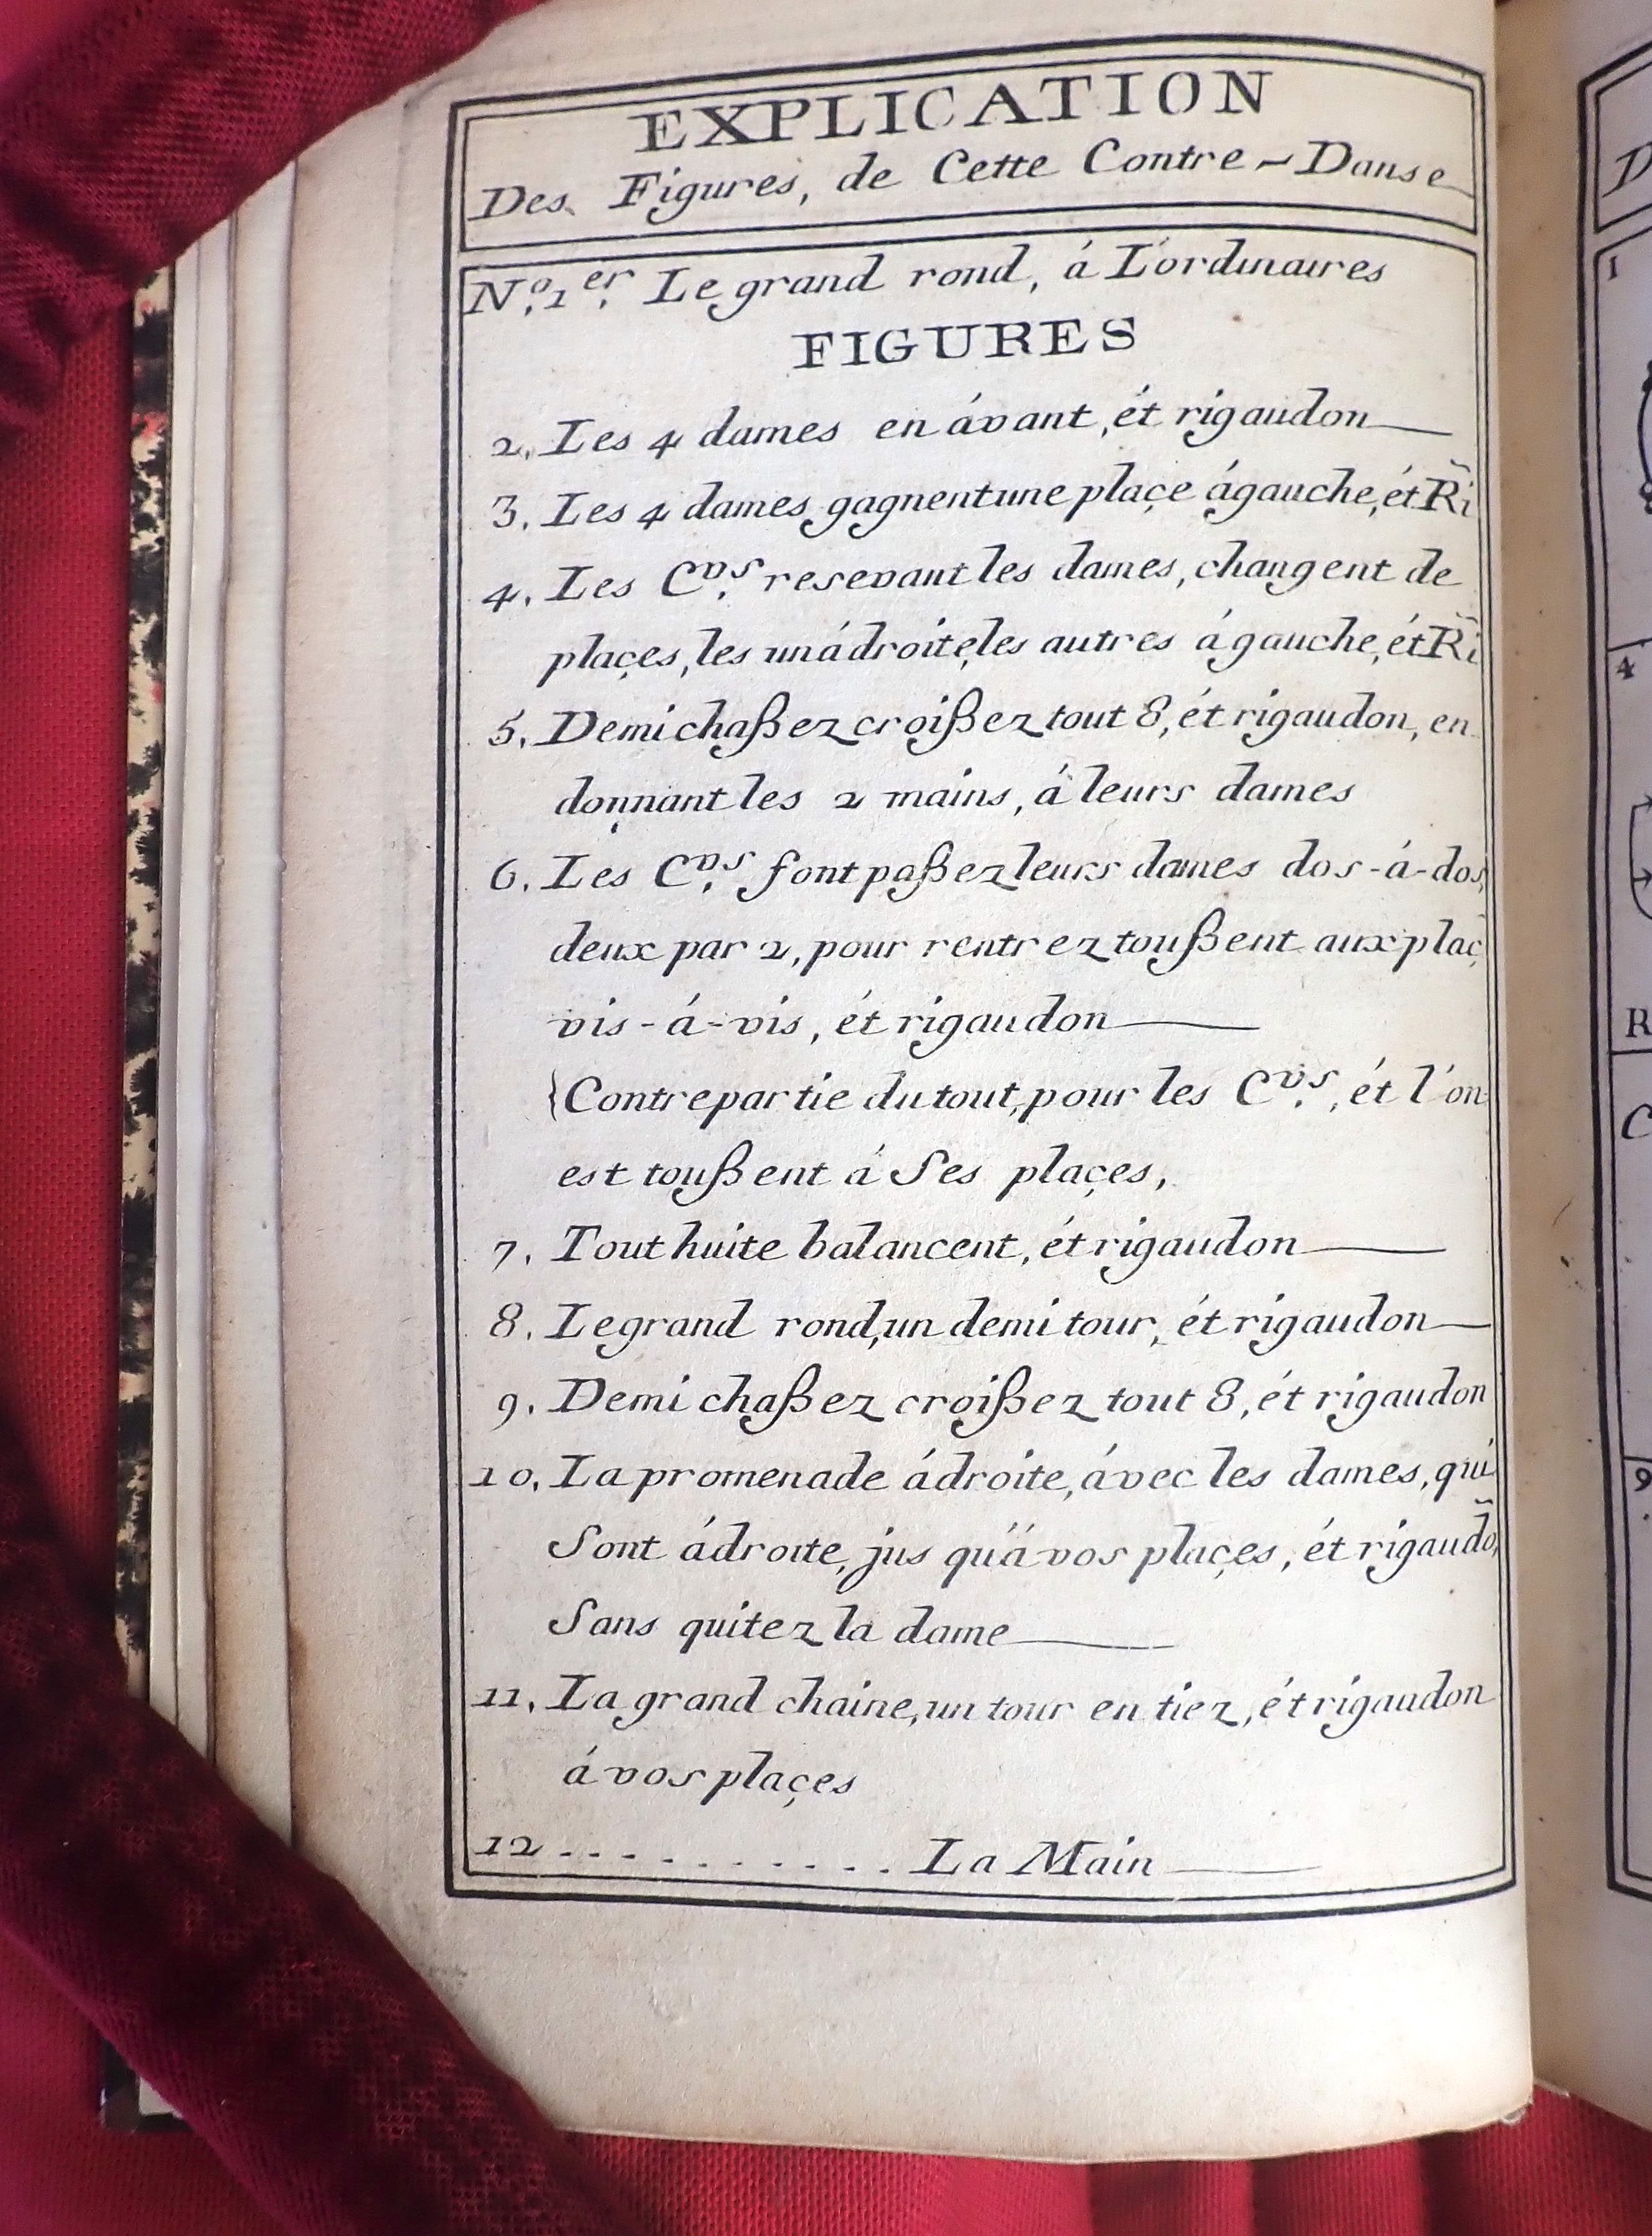 EXPLICATION
Des Figures, de Cette Contre-Danse
N.º 1.er Le grand rond, á L'ordinaires
FIGURES
2, Les 4 dames en ávant, ét rigaudon
3, Les 4 dames gagnent une plaçe ágauche, ét R̃i
4, Les C.vs resevant les dames, changent de
plaçes, les un ádroite, les autres ágauche, ét R̃i
5, Demi chaßez croißez tout 8, ét rigaudon, en
donnant les 2 mains, á leurs dames
6, Les C.vs font paßez leurs dames dos-á-dos,
deux par 2, pour rentrez toußent aux plaç
vis-á-vis, ét rigaudon
{Contrepartie du tout, pour les C.vs, ét l'on
est toußent á Ses plaçes,
7, Tout huite balancent, ét rigaudon
8, Le grand rond, un demi tour, ét rigaudon
9, Demi chaßez croißez tout 8, ét rigaudon
10, La promenade ádroite, ávec les dames, qui
Sont ádroite, jus qu'á vos plaçes, ét rigaud̃o,
Sans quitez la dame
11, La grand chaine, un tour en tiez, ét rigaudon
á vos plaçes
12 . . . . . . . . . . La Main
D
1
4
R
C
9